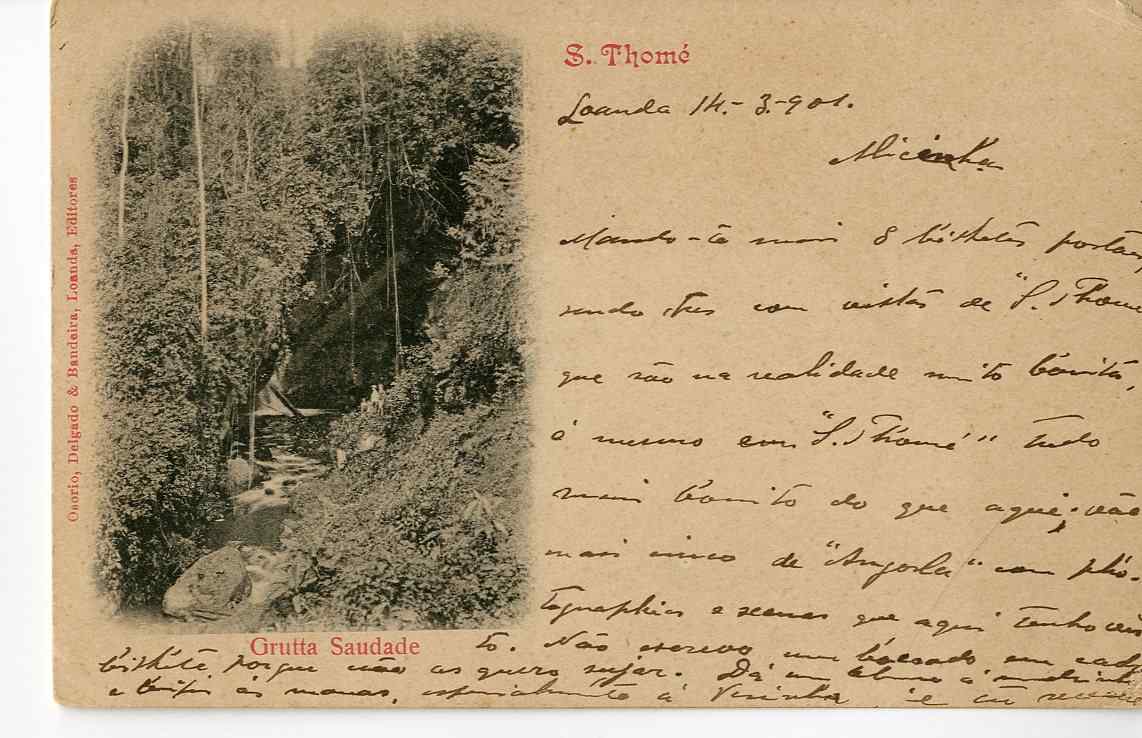 S. Thomé
Loanda 14-3-901.
Micinha
Mando-te mais 8 bilhetes postaes
sendo tres com vistas de "S. Thomé
que são na realidade muito bonitas,
é mesmo em "S. Thomé" tudo
mais bonito do que aqui; vão
mais cinco de "Angola" com pho-
tographias e scenas que aqui tenho vis
to. Não escrevo um bocado em cada
bilhete porque não os quero sujar. Dá um
e beijos ás manas, especialmente á
Grutta Saudade
Osorio, Delgado & Bandeira, Loanda, Editores